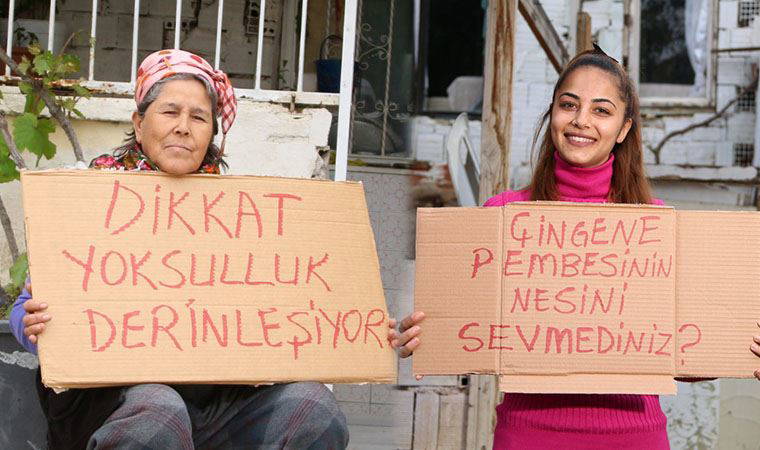 DiKKAT
YOKSULLUK
DERiNLEŞiYOR
ÇiNGENE
PEMBESiNiN
NESiNi
SEVMEDiNiZ?